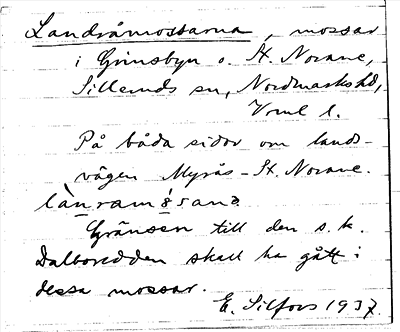 Landråmossarna, mossar
i Grinsbyn o. St. Norane,
Silleruds sn, Nordmarks hd,
Vrml l.
På båda sidor om lands-
vägen Myrås - St. Norane.
Gränsen till den s.k.
Dalboredden skall ha gått i
dessa mossar.
E. Silfors 1937.